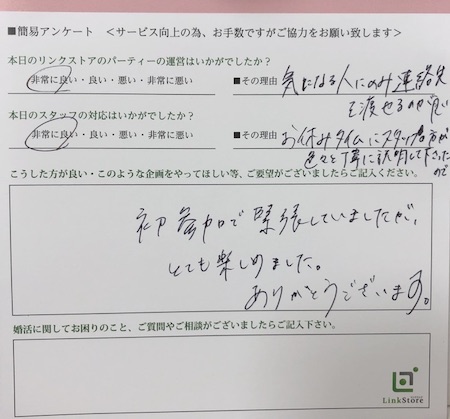 ■簡易アンケート　＜サービス向上の為、お手数ですがご協力をお願い致します＞
本日のリンクストアのパーティーの運営はいかがでしたか？
非常に良い・良い・悪い・非常に悪い　■その理由　気になる人にのみ連絡先
を渡せるのが良い
本日のスタッフの対応はいかがでしたか？
非常に良い・良い・悪い・非常に悪い　■その理由　お休みタイムにスタッフの方が
色々と丁寧に説明して下さったので
こうした方が良い・このような企画をやってほしい等、ご要望がございましたらご記入ください。
初参加で緊張していましたが、
とても楽しめました。
ありがとうございます。
婚活に関してお困りのこと、ご質問やご相談がございましたらご記入下さい。
LinkStore